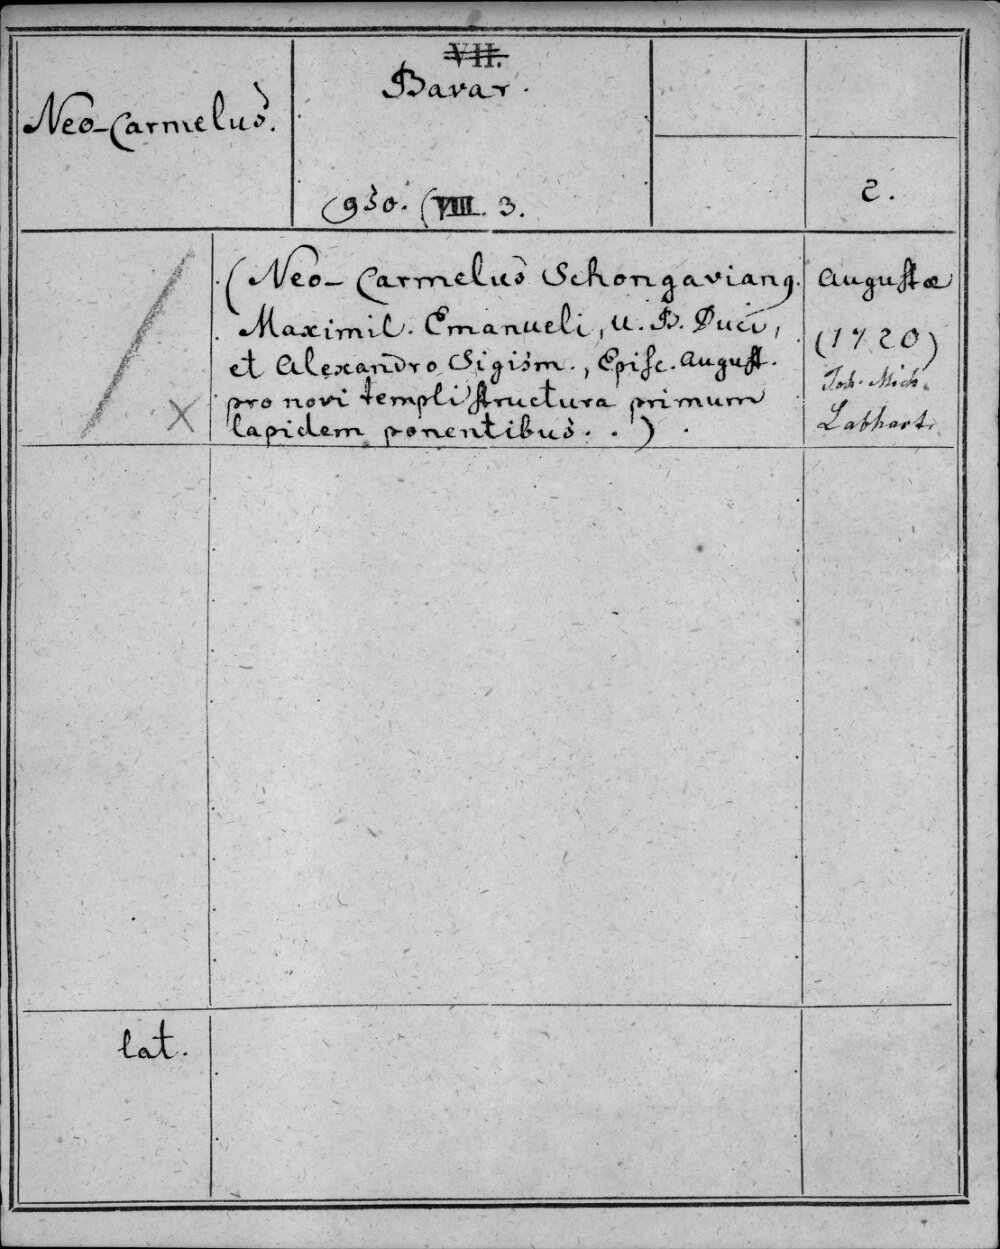 Neo-Carmelus.
VII.
Bavar.
930. (VIII. 3.
2.
(Neo-Carmelus Schongavianus.
Maximil. Emanueli, U. B. Duci,
et Alexandro Sigism., Episc. August.
pro novi templi structura primum
lapidem ponentibus. . ) .
Augustae
(1720)
Joh. Mich.
Labhart.
X
lat.